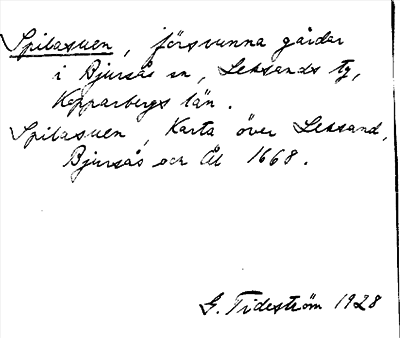 Spilasuen, försvunna gårdar
i Bjursås sn, Leksands tg,
Kopparbergs län.
Spilasuen, Karta över Leksand,
Bjursås och Ål 1668.
G. Tideström 1928